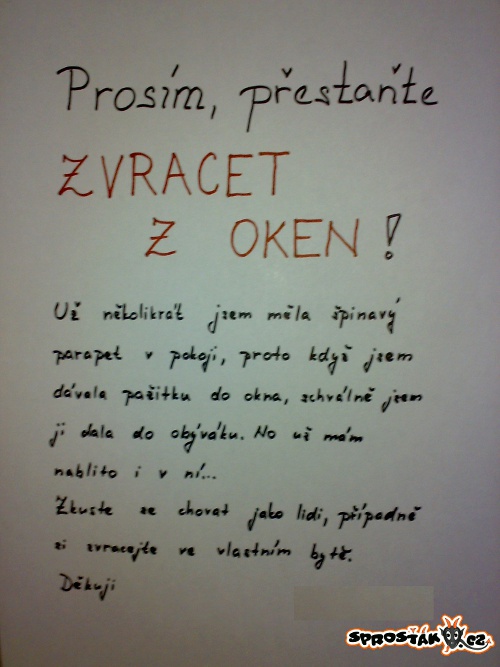 Prosím, přestaňte
ZVRACET
Z OKEN!
Už několikrát jsem měla špinavý
parapet v pokoji, proto když jsem
dávala pažitku do okna, schválně jsem
ji dala do obýváku. No už mám
nablito i v ní...
Zkuste se chovat jako lidi, případně
si zvracejte ve vlastním bytě.
Děkuji
SPROSŤÁK.CZ